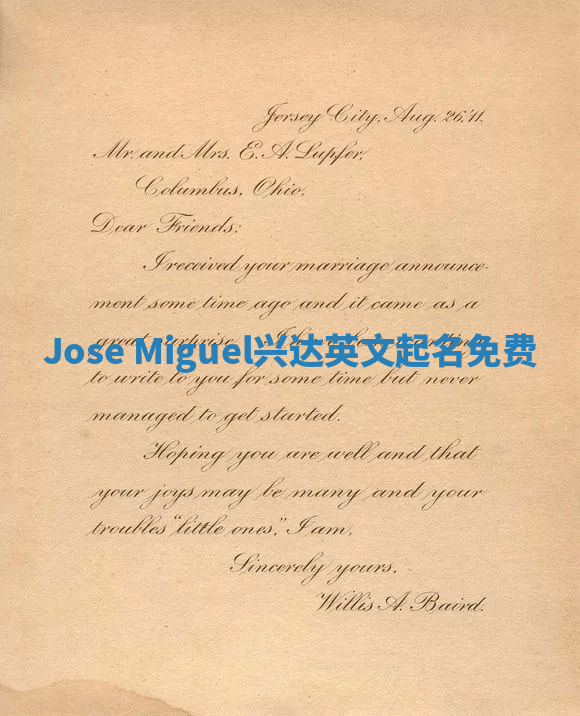 Jersey City, Aug. 26,'11.
Mr. and Mrs. E. A. Lupfer,
Columbus, Ohio.
Dear Friends:
I received your marriage announce-
ment some time ago and it came as a
great surprise
Jose Miguel兴达英文起名免费
to write to you for some time but never
managed to get started.
Hoping you are well and that
your joys may be many and your
troubles "little ones," I am,
Sincerely yours,
Willis A. Baird.